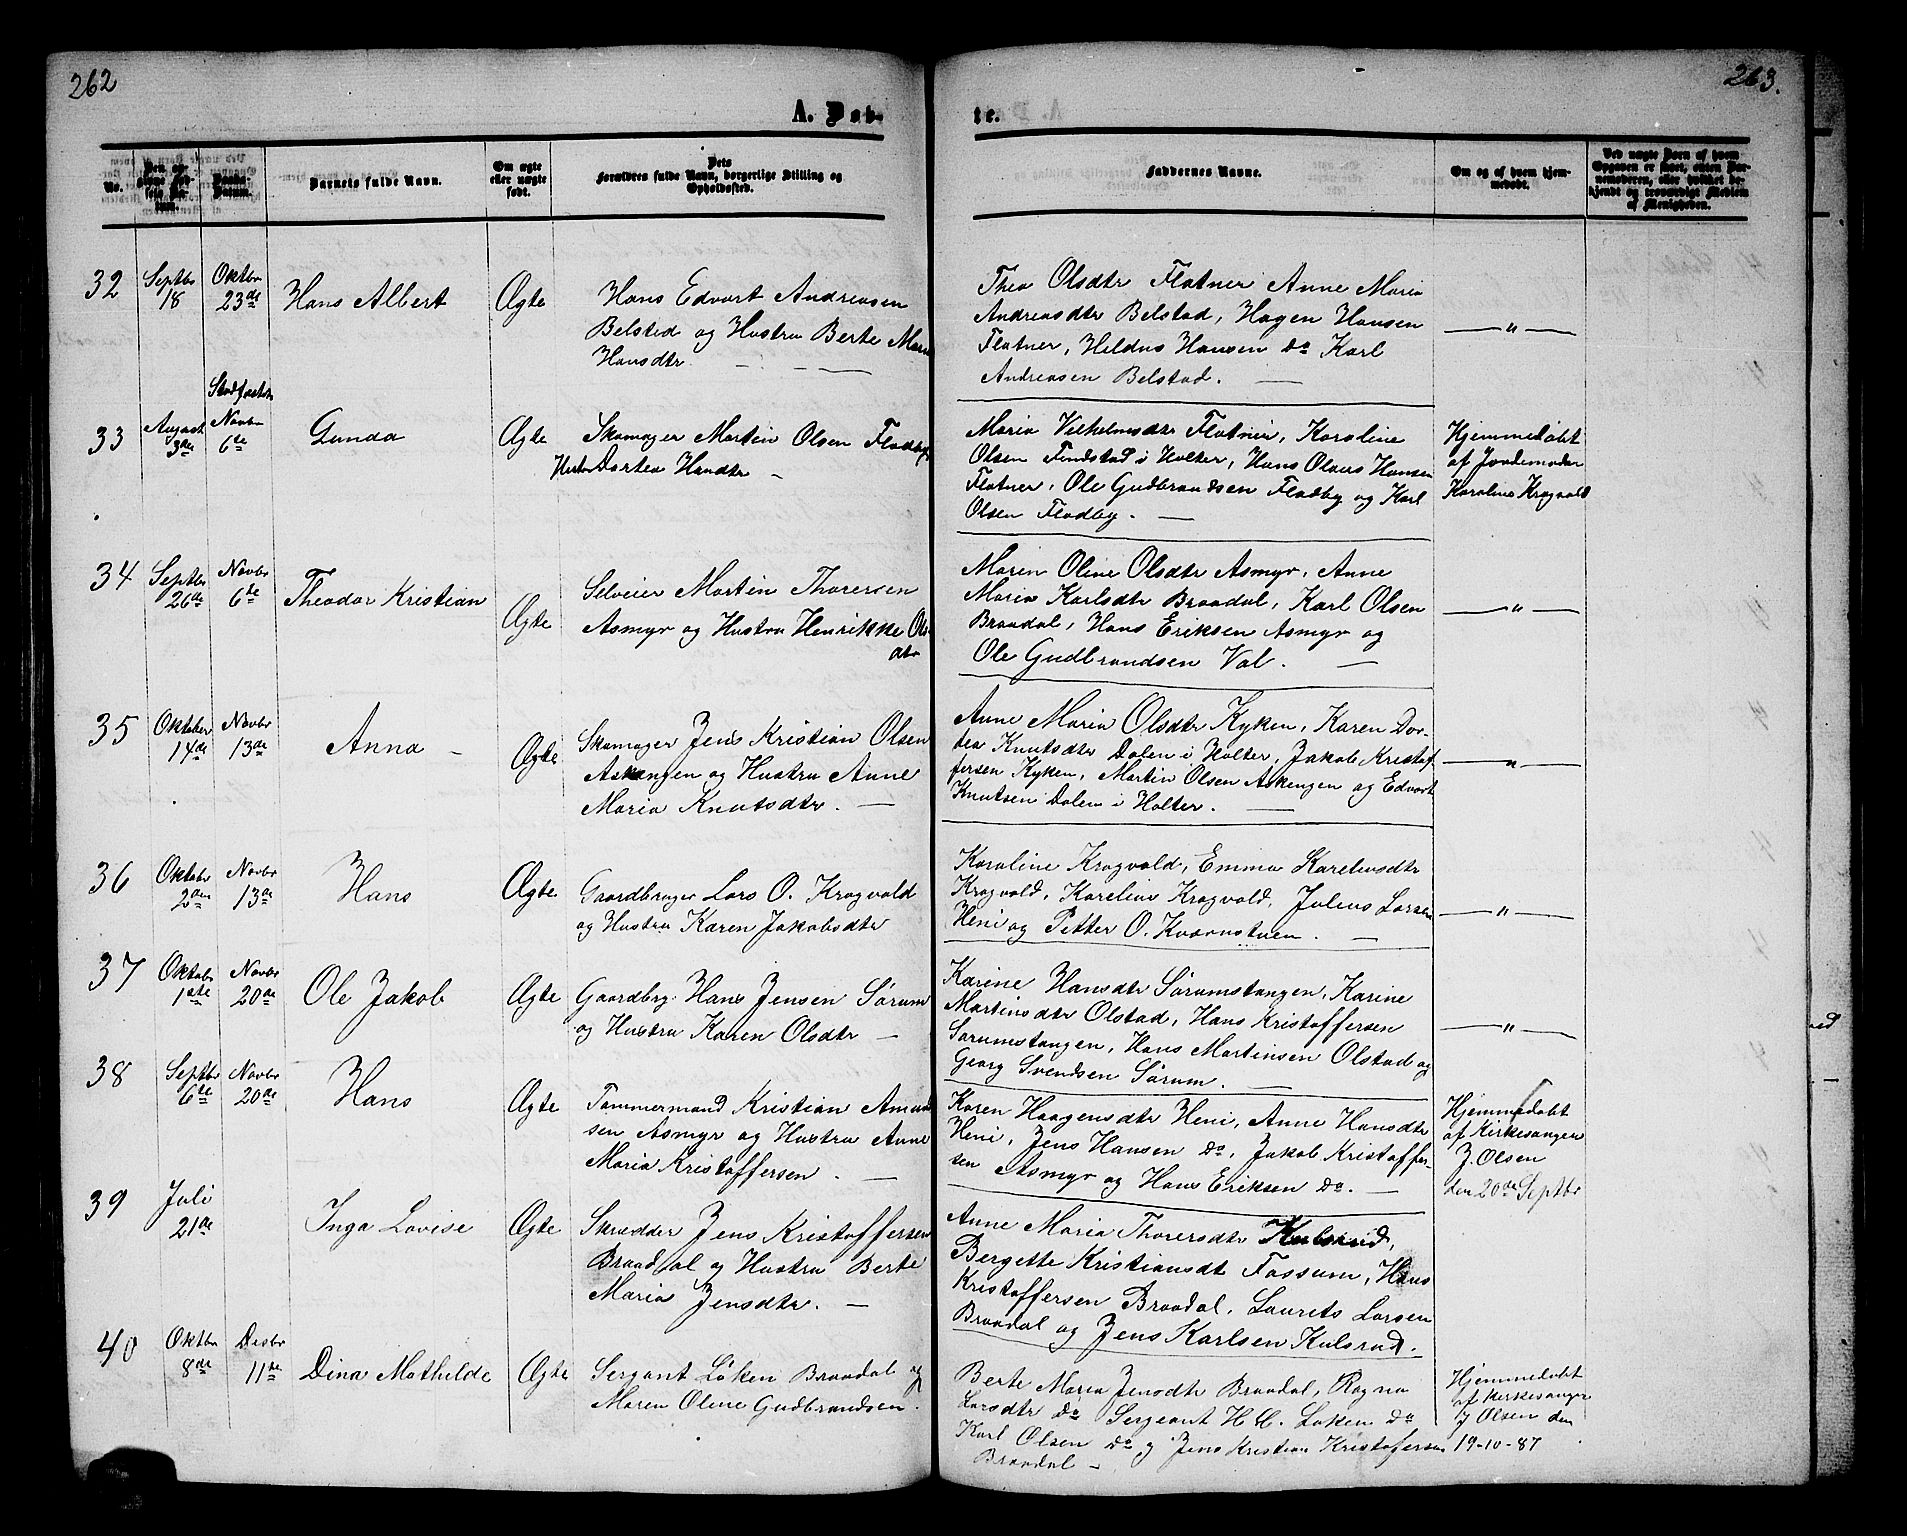 262
263.
A. Døb-
te.
No.
Barnets fulde Navn.
Om ægte
eller uægte
født.
Dets
Forældres fulde Navn, borgerlige Stilling og
Opholdssted.
Faddernes Navne.
Om og af hvem hjem-
medøbt.
Ved uægte Børn af hvem
32
Septbr
18
Oktbr
23de
Hans Albert
Ægte
Hans Edvart Andreasen
Belstad og Hustru Berte Marie
Hansdtr
Thea Olsdtr Flatner Anne Maria
Andreasdtr Belstad, Hagen Hansen
Flatner, Heldus Hansen do Karl
Andreasen Belstad. —
— " —
33
August
3de
Stadfæstede
Novbr
6te
Gunda
Ægte
Skomager Martin Olsen Fladby
Hustru Dortea Hansdtr —
Maria Vilhelmsdtr Flatner, Karoline
Olsen Findstad i Holter, Hans Olaus Hansen
Flatner, Ole Gudbrandsen Fladby og Karl
Olsen Fladby. —
Hjemmedøbt
af Jordemoder
Karoline Krogvold
34
Septbr
26de
Novbr
6te
Theodor Kristian
Ægte
Selveier Martin Thoresen
Asmyr og Hustru Henrikke Ols-
dtr
Maren Oline Olsdtr Asmyr, Anne
Maria Karlsdtr Braadal, Karl Olsen
Braadal, Hans Eriksen Asmyr og
Ole Gudbrandsen Val. —
— " —
35
Oktober
14de
Novbr
13de
Anna —
Ægte
Skomager Jens Kristian Olsen
Askengen og Hustru Anne
Maria Knutsdtr. —
Anne Maria Olsdtr Kyken, Karen Dor-
tea Knutsdtr Dalen i Holter, Jakob Kristof-
fersen Kyken, Martin Olsen Askengen og Edvart
Knutsen Dalen i Holter. —
— " —
36
Oktobr
2den
Novbr
13de
Hans
Ægte
Gaardbruger Lars O. Krogvold
og Hustru Karen Jakobsdtr
Karoline Krogvold, Emma Kareliusdtr
Krogvold, Karelius Krogvold, Julius Larsen
Heni og Petter O. Kværnstuen. —
— " —
37
Oktobr
1ste
Novbr
20de
Ole Jakob
Ægte
Gaardbrg. Hans Jensen Sørum
og Hustru Karen Olsdtr —
Karine Hansdtr Sørumstangen, Karine
Martinsdtr Olstad, Hans Kristoffersen
Sørumstangen, Hans Martinsen Olstad og
Georg Svendsen Sørum. —
— " —
38
Septbr
6te
Novbr
20de
Hans
Ægte
Tømmermand Kristian Amund-
sen Asmyr og Hustru Anne
Maria Kristoffersen —
Karen Haagensdtr Heni, Anne Hansdtr
Heni, Jens Hansen do, Jakob Kristoffer-
sen Asmyr og Hans Eriksen do. —
Hjemmedøbt
af Kirkesanger
J. Olsen
den 20de Septbr
39
Juli
21de
Inga Lovise
Ægte
Skrædder Jens Kristoffersen
Braadal og Hustru Berte
Maria Jensdtr. —
Anne Maria Thorersdtr Kulsrud,
Bergette Kristiansdt Fossum, Hans
Kristoffersen Braadal, Laurets Larsen
Braadal og Jens Karlsen Kulsrud.
40
Oktbr
8de
Desbr
11te
Dina Mathilde
Ægte
Sergant Løken Braadal og
Maren Oline Gudbrandsen.
Berte Maria Jensdtr Braadal, Ragna
Larsdtr do Sergeant H. H. Løken do
Karl Olsen do og Jens Kristian Kristofersen
Braadal —
Hjemmedøbt
af Kirkesanger
J Olsen den
19-10-87